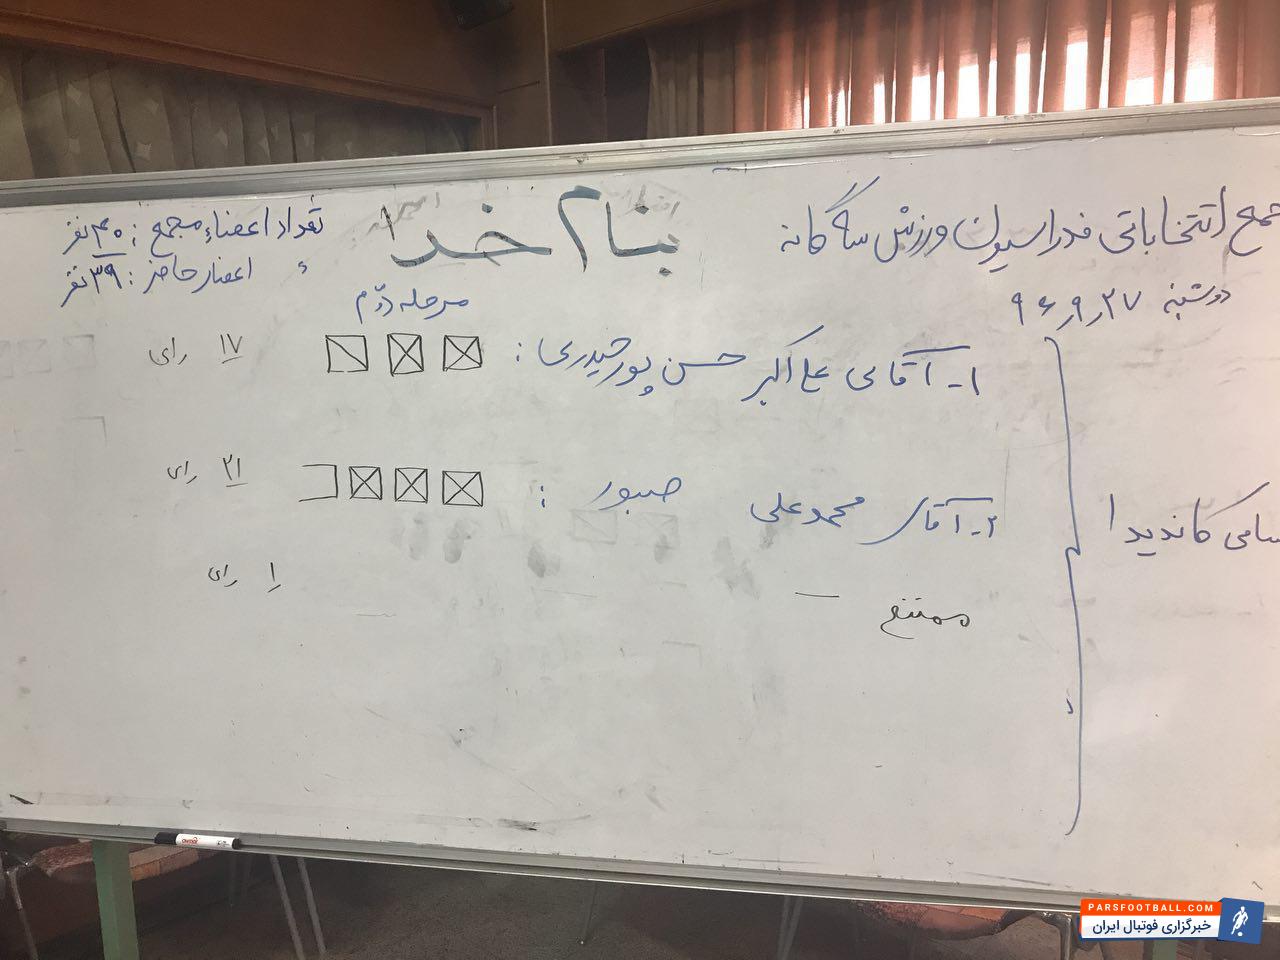 بنام خدا
جمع انتخاباتی فدراسیون ورزش سه گانه
دوشنبه ۹۶٫۹٫۲۷
تعداد اعضاء مجمع : ۴۰ نفر
اعضاء حاضر : ۳۹ نفر
مرحله دوم
سامی کاندیدا
۱- آقای علی اکبر حسن پور حیدری : ۱۷ رای
۲- آقای محمد علی صبور : ۲۱ رای
ممتنع — ۱ رای
PARSFOOTBALL.COM
خبرگزاری فوتبال ایران